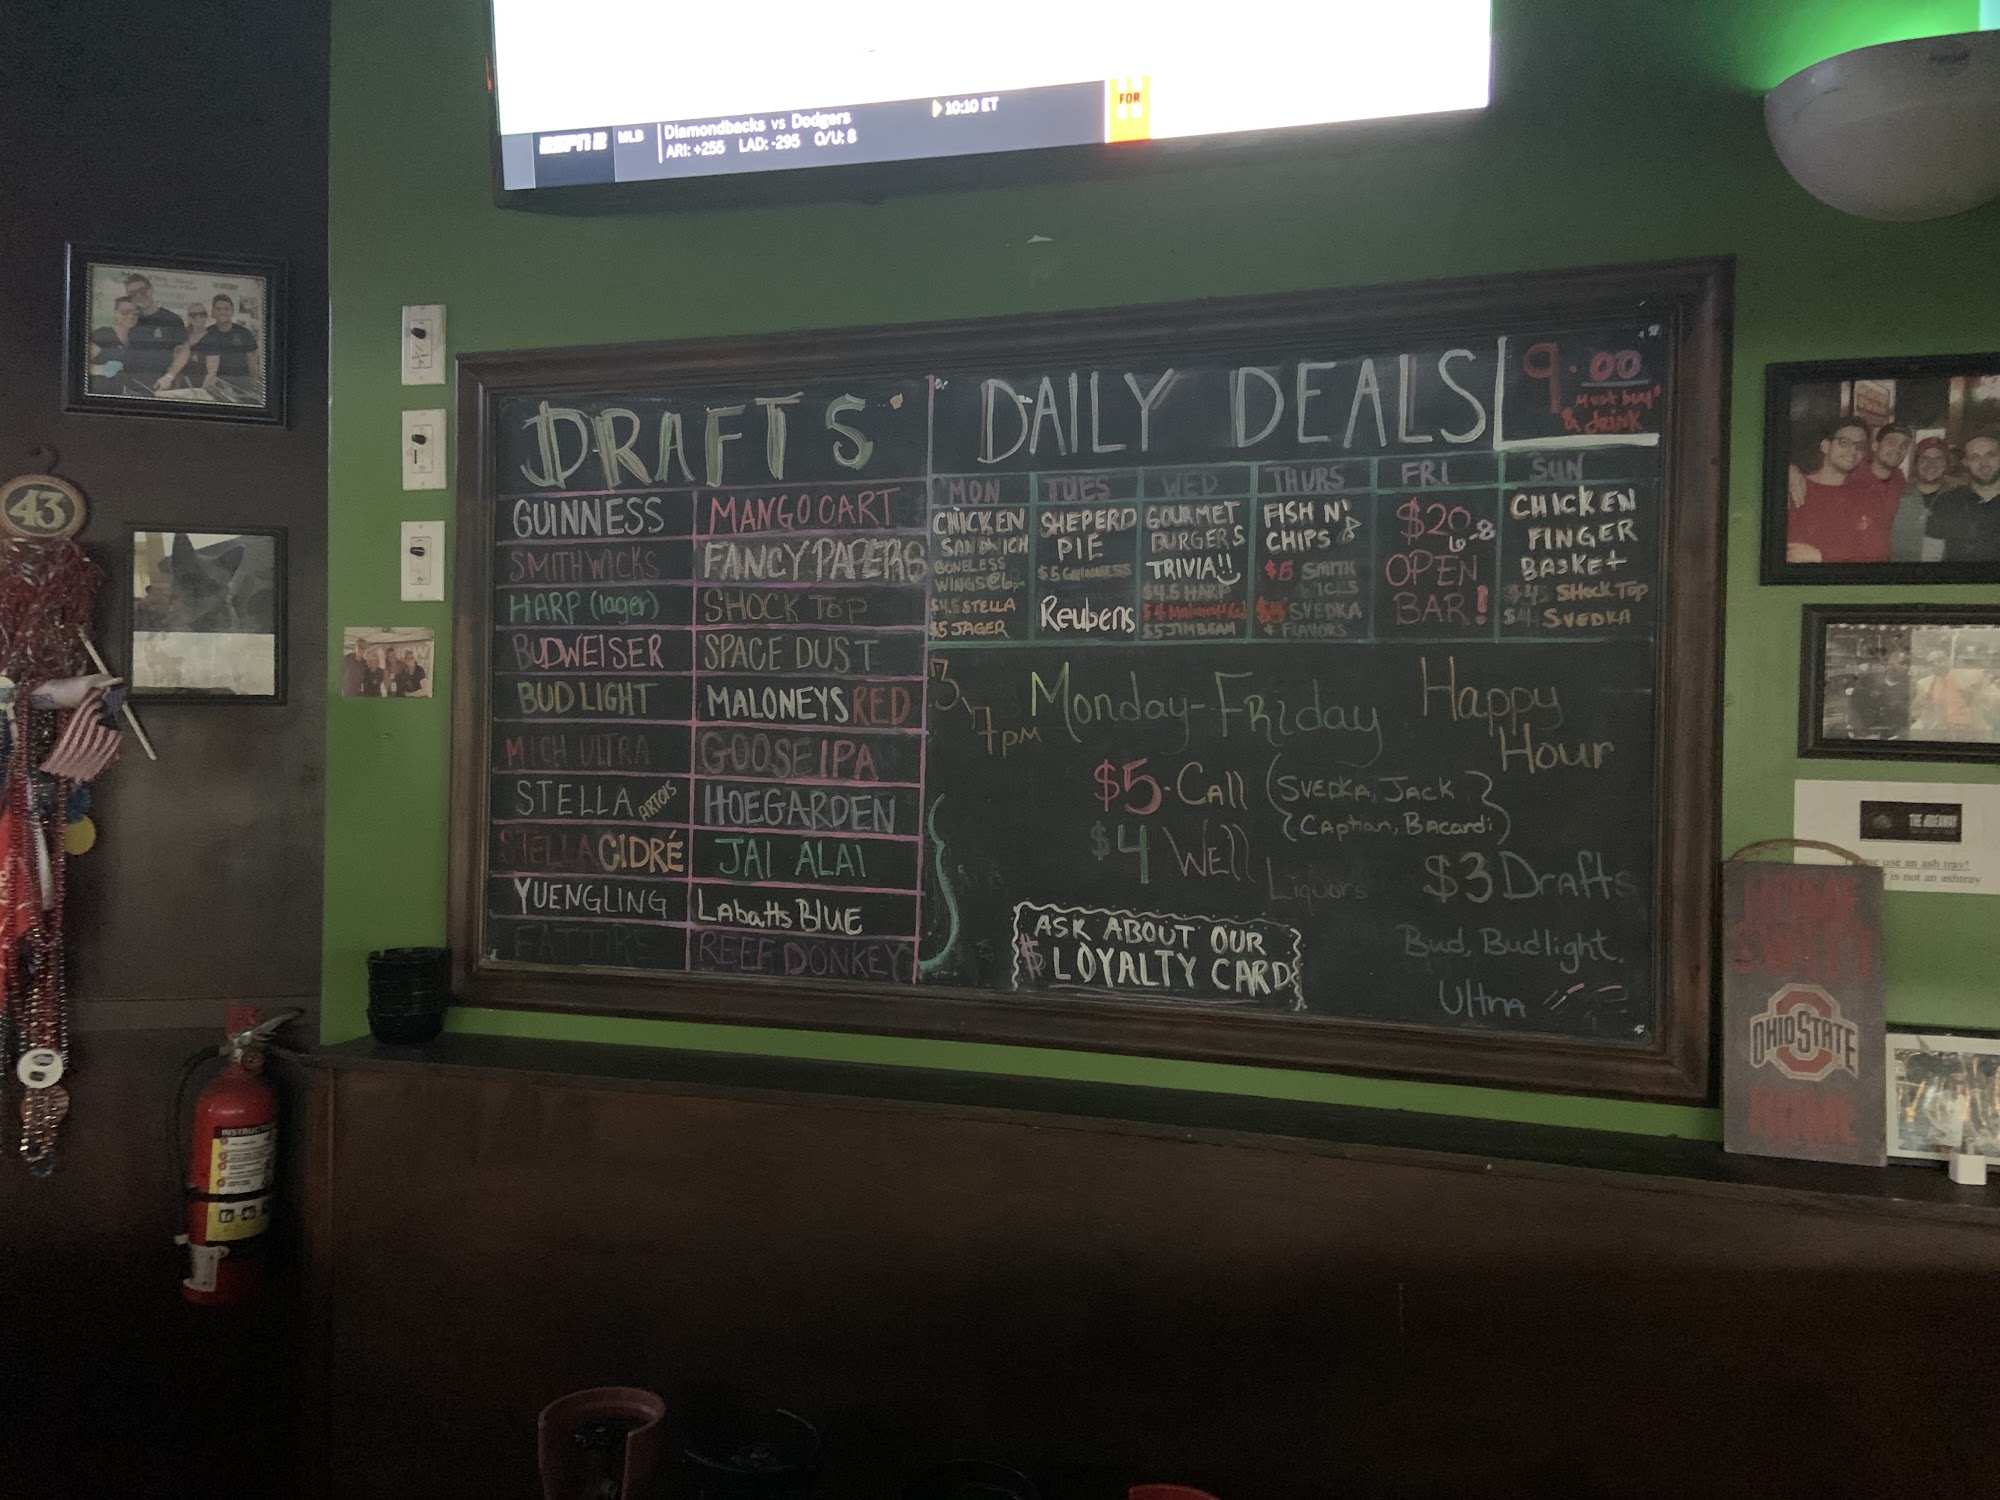 ESPN 2 MLB Diamondbacks vs Dodgers 10:10 ET
ARI: +255 LAD: -295 O/U: 8
FOR
43
DRAFTS
GUINNESS
SMITHWICKS
HARP (lager)
BUDWEISER
BUD LIGHT
MICH ULTRA
STELLA ARTOIS
STELLA CIDRÉ
YUENGLING
FAT TIRE
MANGO CART
FANCY PAPERS
SHOCK TOP
SPACE DUST
MALONEYS RED
GOOSE IPA
HOEGARDEN
JAI ALAI
Labatts BLUE
REEF DONKEY
DAILY DEALS
9.00
Must buy
& drink
MON
CHICKEN
SANDWICH
BONELESS
WINGS@6
$4.5 STELLA
$5 JAGER
TUES
SHEPERD
PIE
$5 GUINNESS
Reubens
WED
GOURMET
BURGERS
TRIVIA!!
$4.5 HARP
$4 Maloneys
$5 JIM BEAM
THURS
FISH N'
CHIPS
$5 SMITH
ICKS
SVEDKA
FLAVORS
FRI
$20
6-8
OPEN
BAR!
SUN
CHICKEN
FINGER
BASKET
SHOCK TOP
$4 SVEDKA
3-7pm Monday-Friday Happy
Hour
$5-Call (SVEDKA, JACK
Captian, Bacardi)
$4 Well
Liquors
$3 Drafts
Bud, Budlight,
Ultra
ASK ABOUT OUR
$ LOYALTY CARD
THE HIDEAWAY
use an ash tray!
is not an ashtray
HOME
SWEET
OHIO STATE
HOME
INSTRUCTIONS